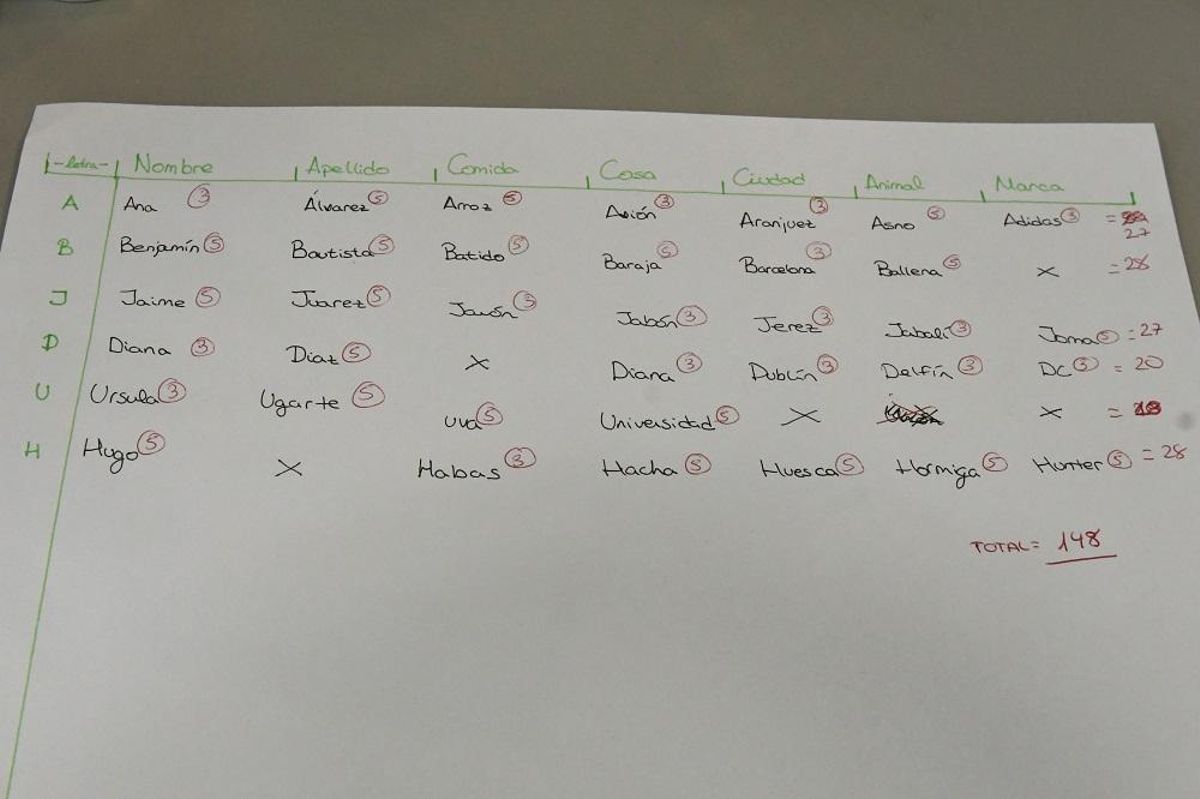 -letra- Nombre Apellido Comida Cosa Ciudad Animal Marca
A Ana 3 Álvarez 5 Arroz 5 Avión 3 Aranjuez 3 Asno 5 Adidas 3 =
27
B Benjamín 5 Bautista 5 Batido 5 Baraja 5 Barcelona 3 Ballena 5 X =28
J Jaime 5 Juarez 5 Jamón 3 Jabón 3 Jerez 3 Jabalí 3 Joma 5 =27
D Diana 3 Díaz 5 X Diana 3 Dublín 3 Delfín 3 DC 3 = 20
U Ursula 3 Ugarte 5 uva 5 Universidad 5 X X = 18
H Hugo 5 X Habas 3 Hacha 5 Huesca 5 Hormiga 5 Hunter 5 = 28
TOTAL= 148